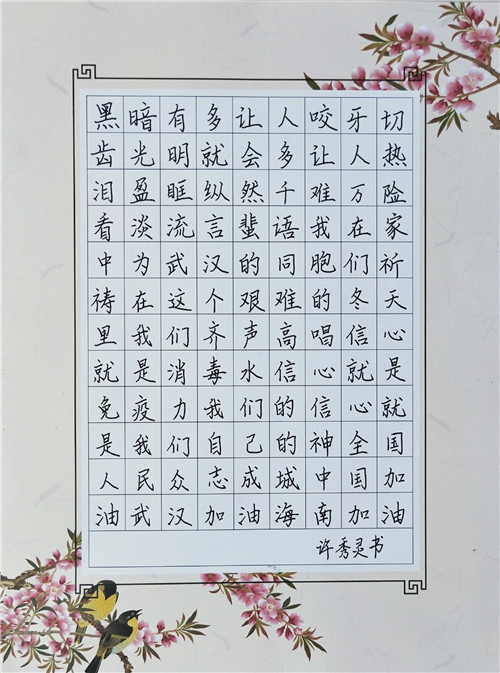 黑暗有多让人咬牙切
齿光明就会多让人热
泪盈眶纵然千难万险
看淡流言蜚语我在家
中为武汉的同胞们祈
祷在这个艰难的冬天
里我们齐声高唱信心
就是消毒水信心就是
免疫力我们的信心就
是我们自己的神全国
人民众志成城中国加
油武汉加油海南加油
许秀灵书